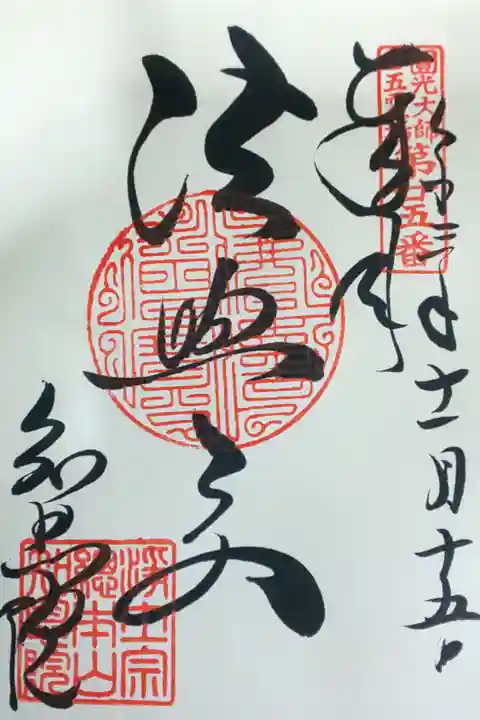 圓光大師
第廿五番
奉拝
令和三年十一月十五日
法然上人
知恩院
浄土宗
總本山
知恩院